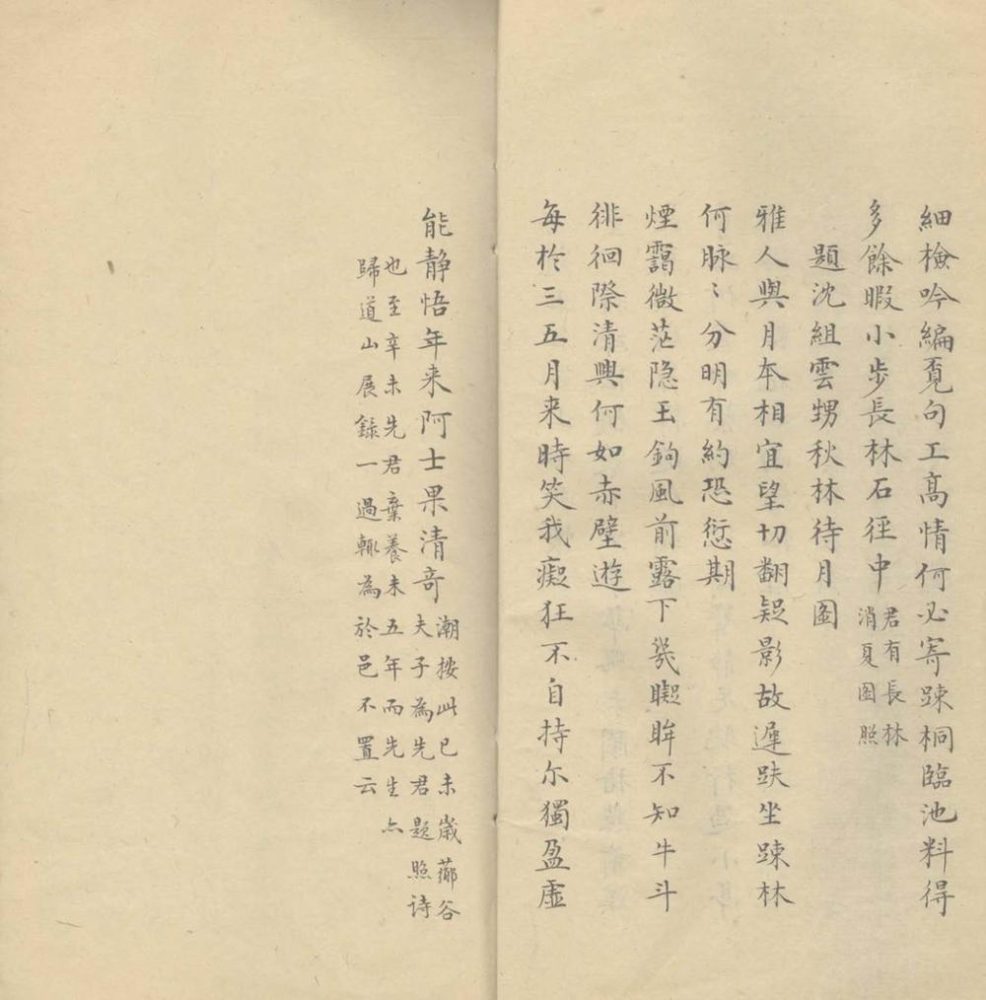 細檢吟編覔句工髙情何必寄踈桐臨池料得
多餘暇小步長林石徑中君有長林
消夏圖照
題沈組雲甥秋林待月圖
雅人與月夲相宜望切翻疑影故遲趺坐踈林
何脉〻分明有約恐愆期
煙靄微茫隐玉鉤風前露下㡬睱眸不知牛斗
徘徊際清興何如赤壁遊
每於三五月来時笑我癡狂不自持尓獨盈虛
能静悟年来阿士果清竒潮按此已未歲薌谷
夫子為先君題照诗
也至辛未先君棄養未五年而先生亦
歸道山展録一過輒為於邑不置云